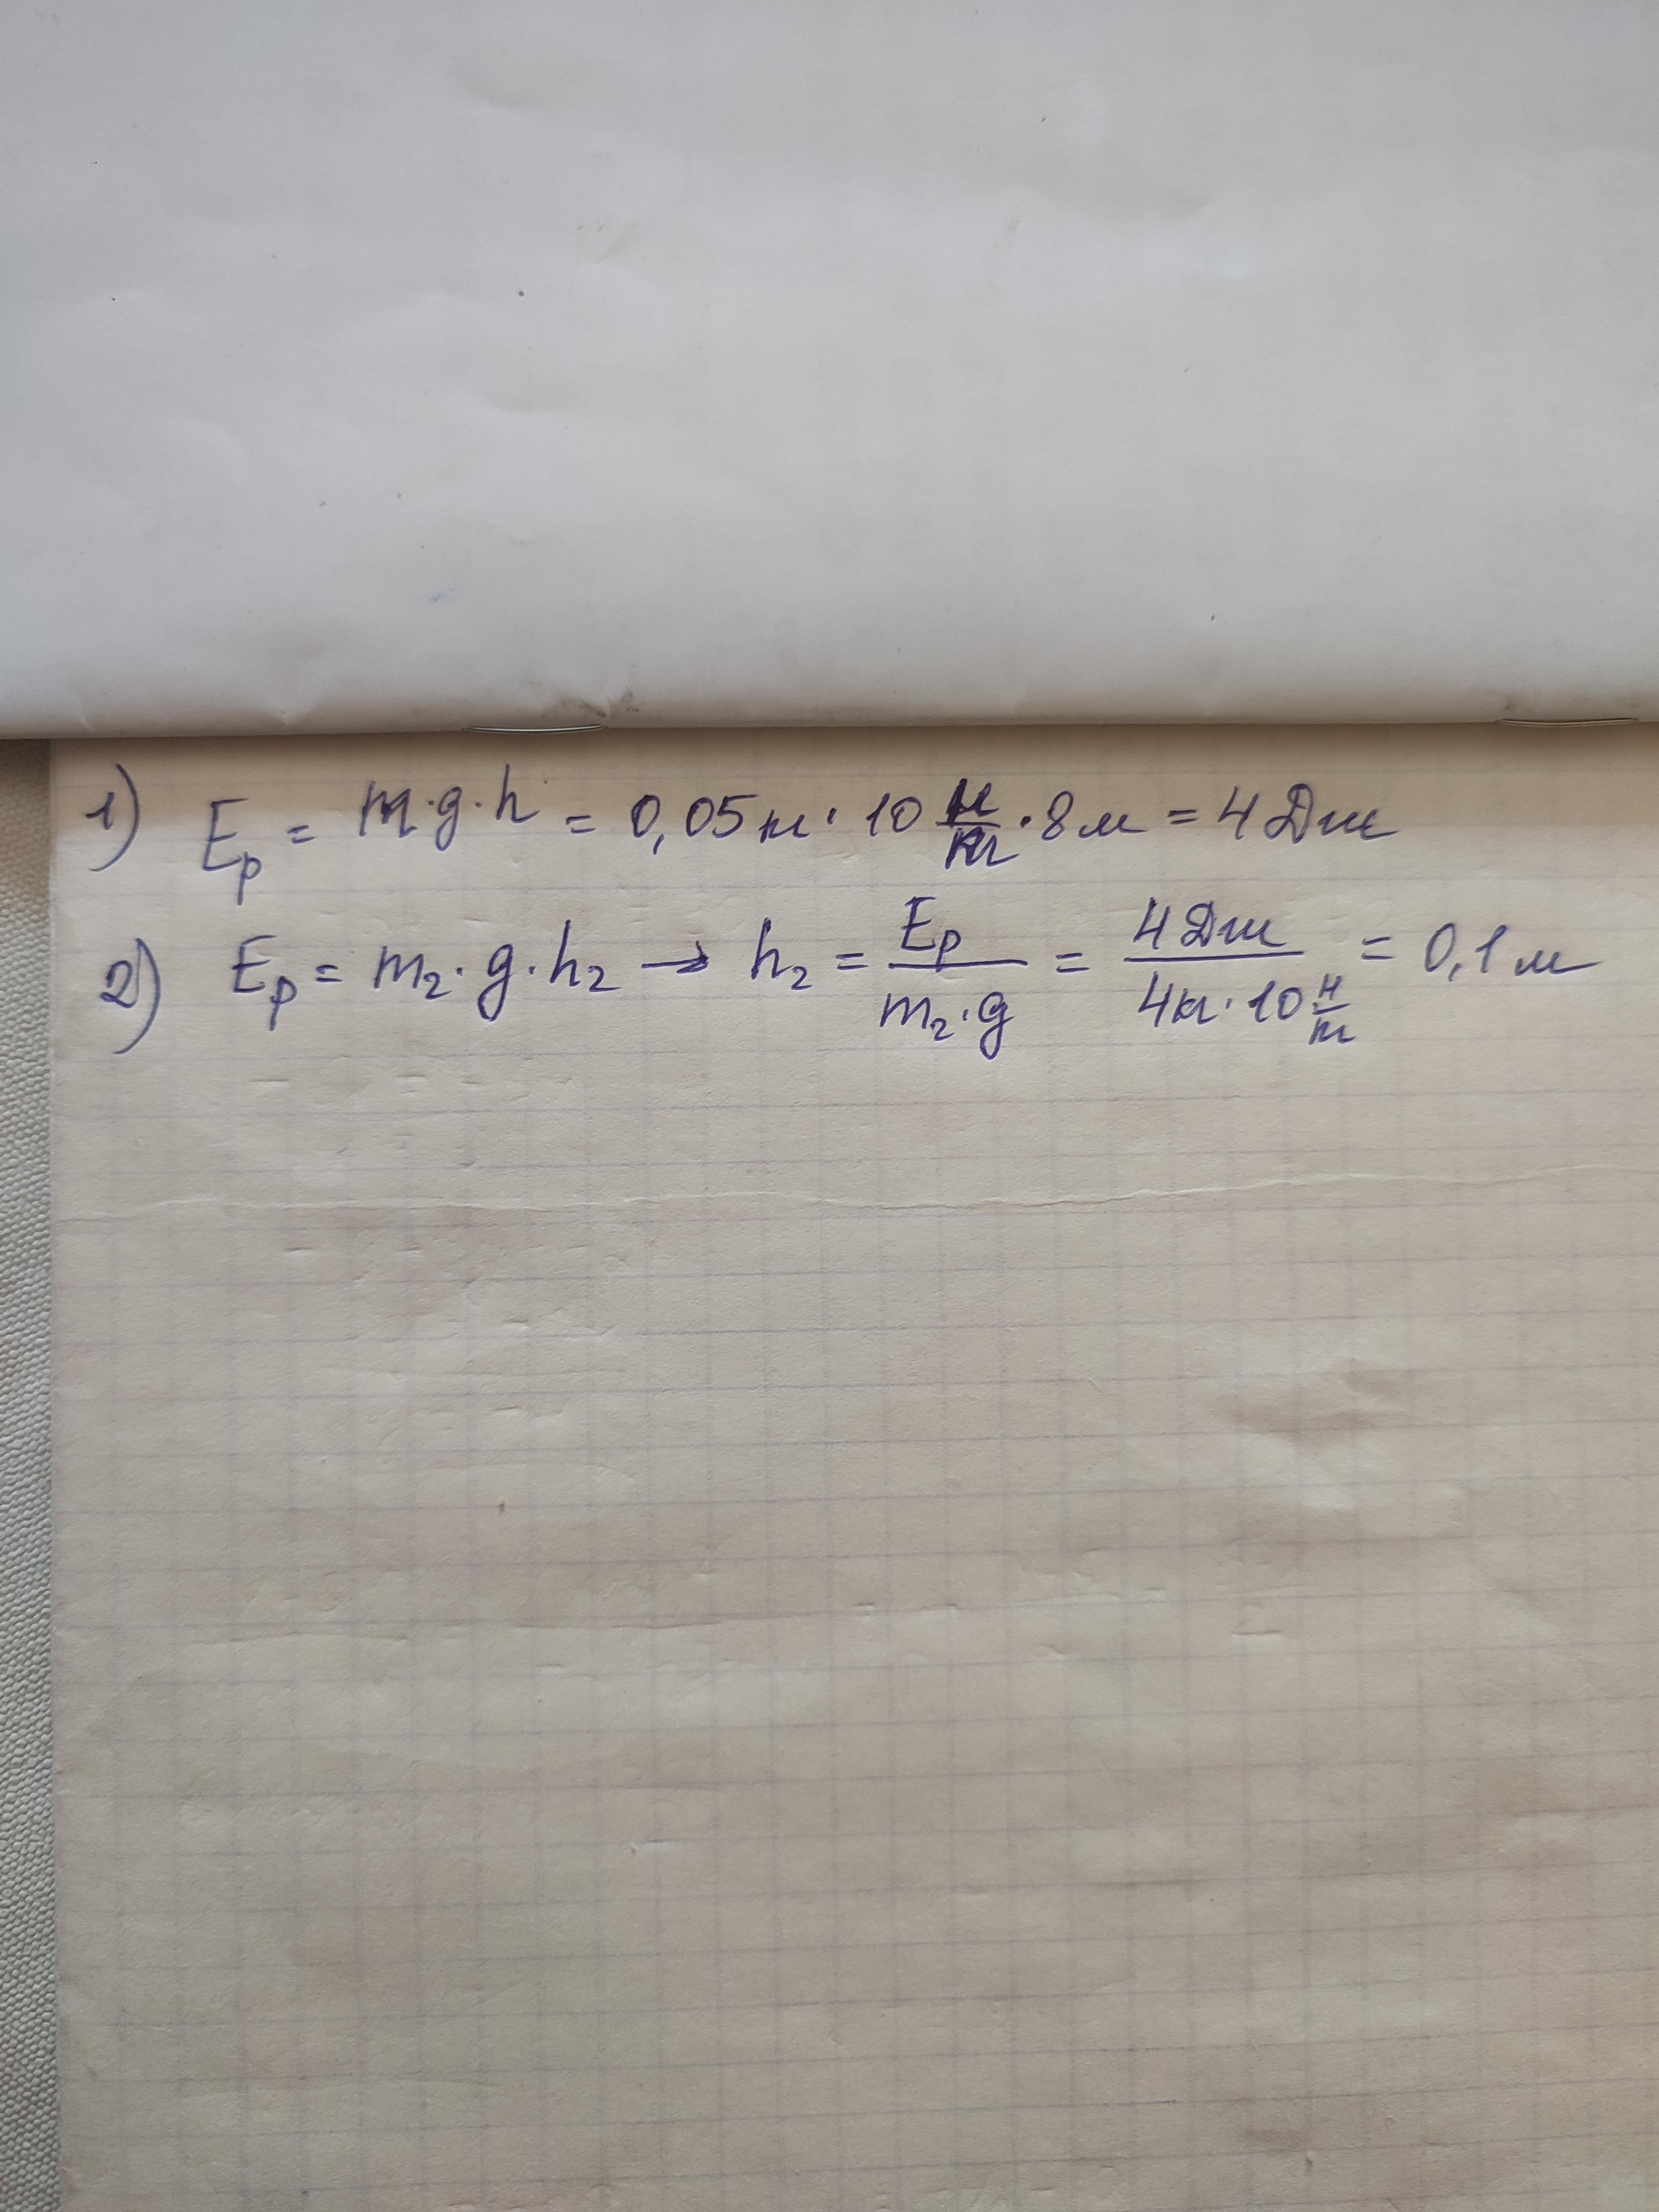 1) Eр = m·g·h = 0,05кг · 10 Н/кг · 8м = 4Дж
2) Eр = m₂·g·h₂ → h₂ = Eр/m₂·g = 4Дж/4кг·10 Н/кг = 0,1м